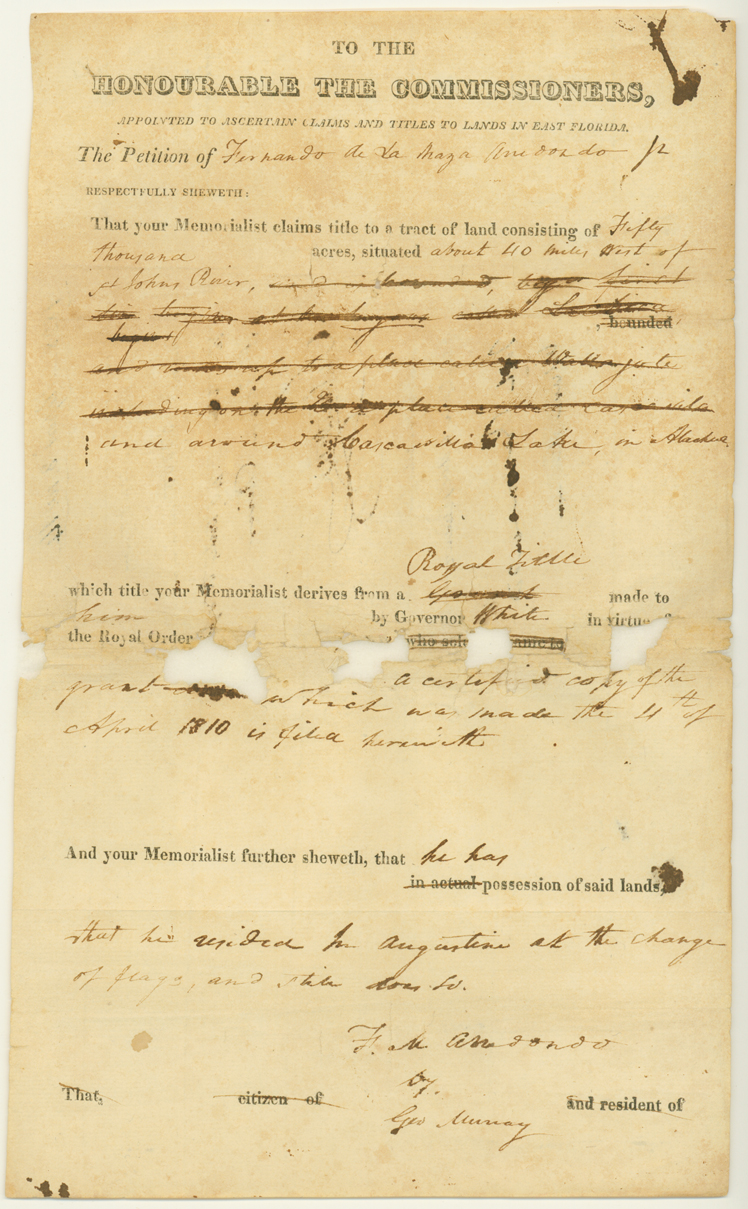 TO THE
HONOURABLE THE COMMISSIONERS,
APPOINTED TO ASCERTAIN CLAIMS AND TITLES TO LANDS IN EAST FLORIDA.
The Petition of Fernando de La Maza Arredondo Jr
RESPECTFULLY SHEWETH:
That your Memorialist claims title to a tract of land consisting of Fifty
thousand acres, situated about 40 miles West of
St Johns River, bounded,
bounded
and up to a place called
on the place called
and around Cascawilla Lake, in Alachua
Royal Title
which title your Memorialist derives from a made to
him by Governor White in virtue of
the Royal Order who sold
a certified copy of the
grant which was made the 4th of
April 1810 is filed herewith
And your Memorialist further sheweth, that he has
in actual possession of said lands,
that he resided in Augustine at the change
of flags, and still does so.
F. M. Arredondo
by
Geo Murray
That, citizen of and resident of